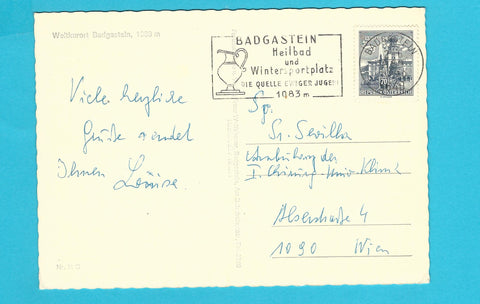 Weltkurort Badgastein, 1083 m
BADGASTEIN
Heilbad
und
Wintersportplatz
DIE QUELLE EWIGER JUGEND
1083 m
BADGASTEIN
REPUBLIK ÖSTERREICH
Viele herzliche
Grüße sendet
Ihnen Louise.
Sr. Sevilla
I. Chirurg. Univ. Klinik
Alserstraße 4
1090 Wien